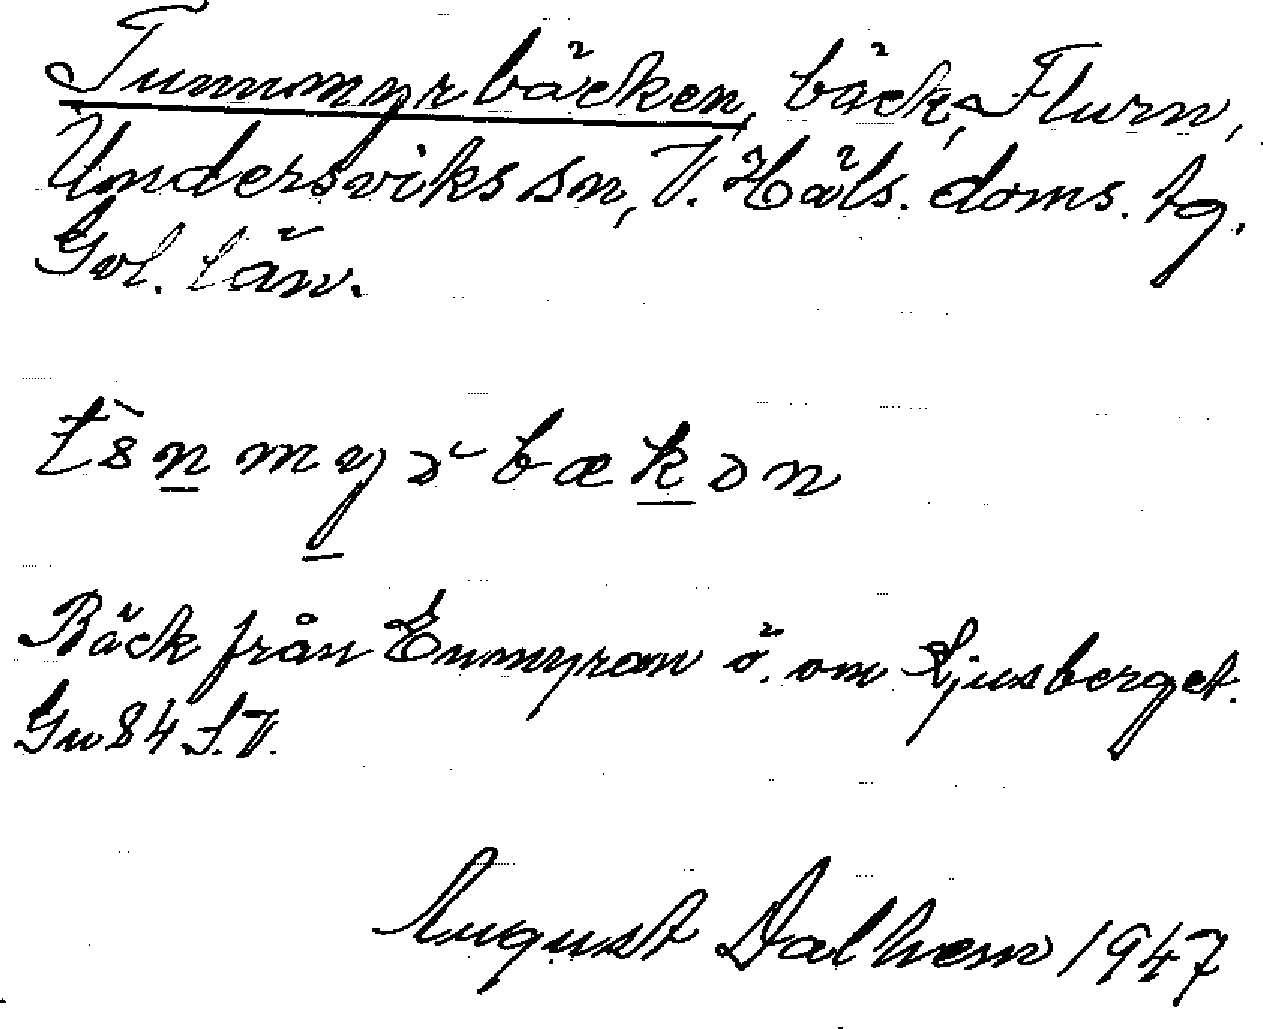 Tunnmyrbäcken, bäck, Flurn,
Undersviks sn, V. Häls. doms. tg.
Gvl. län.
Bäck från Enmyran ö. om Ljusberget.
Gu 84 S.V.
August Dalhem 1947